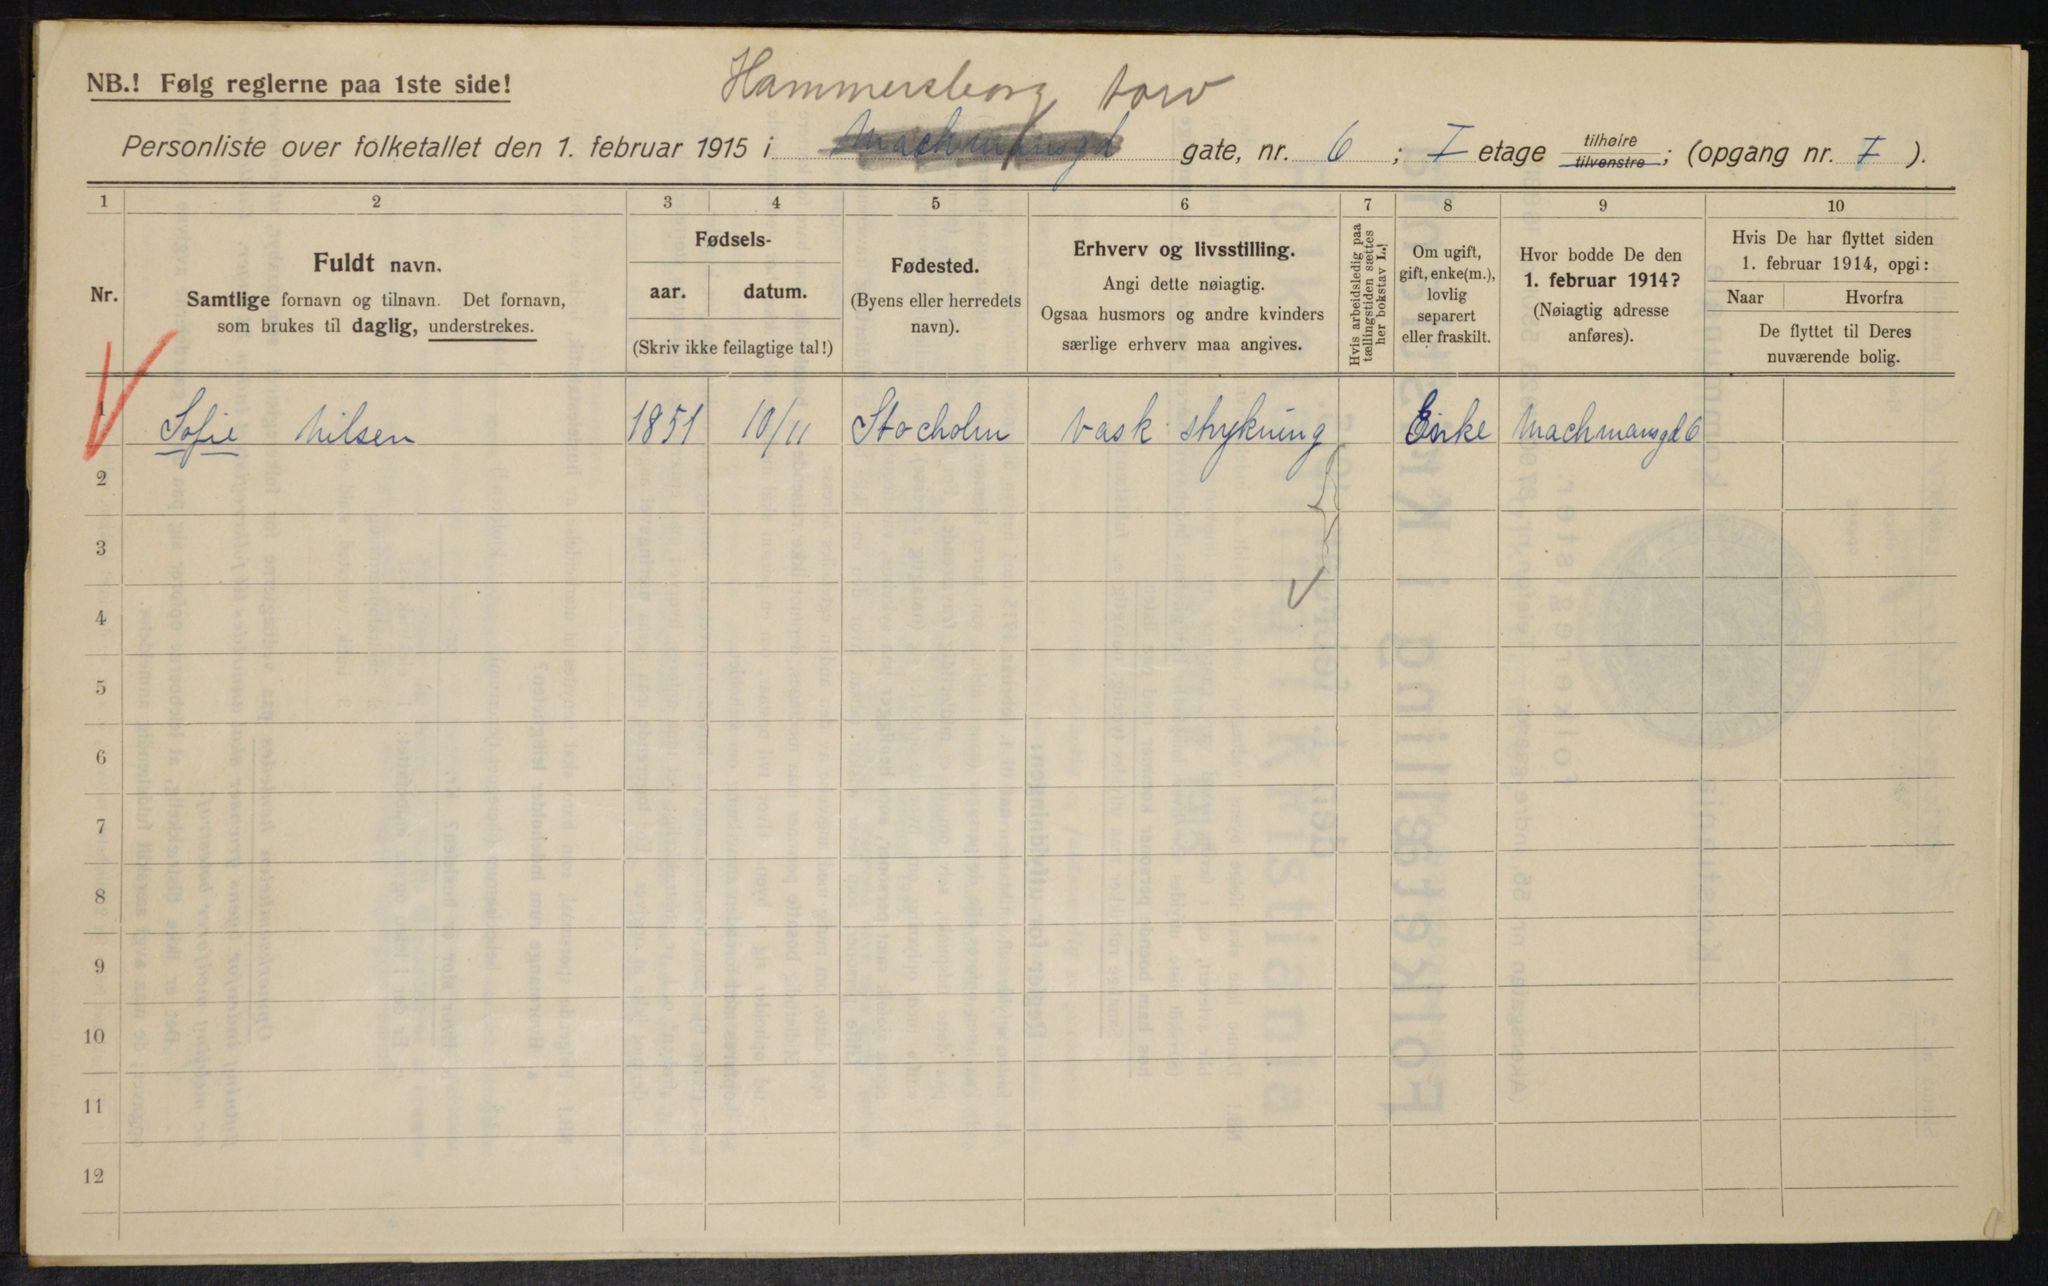 Hammersborg torv
NB.! Følg reglerne paa 1ste side!
Personliste over folketallet den 1. februar 1915 i Machmansgd gate, nr. 6 ; I etage tilhøire tilvenstre ; (opgang nr. I ).
1 2 3 4 5 6 7 8 9 10
Nr.
Fuldt navn.
Samtlige fornavn og tilnavn. Det fornavn,
som brukes til daglig, understrekes.
Fødsels-
aar. datum.
(Skriv ikke feilagtige tal!)
Fødested.
(Byens eller herredets
navn).
Erhverv og livsstilling.
Angi dette nøiagtig.
Ogsaa husmors og andre kvinders
særlige erhverv maa angives.
Hvis arbeidsledig paa
tællingstiden sættes
her bokstav L.!
Om ugift,
gift, enke(m.),
lovlig
separert
eller fraskilt.
Hvor bodde De den
1. februar 1914?
(Nøiagtig adresse
anføres).
Hvis De har flyttet siden
1. februar 1914, opgi:
Naar Hvorfra
De flyttet til Deres
nuværende bolig.
1 Sofie Nilsen 1851 10/11 Stocholm Vask strykning Enke Machmansgd 6
2
3
4
5
6
7
8
9
10
11
12